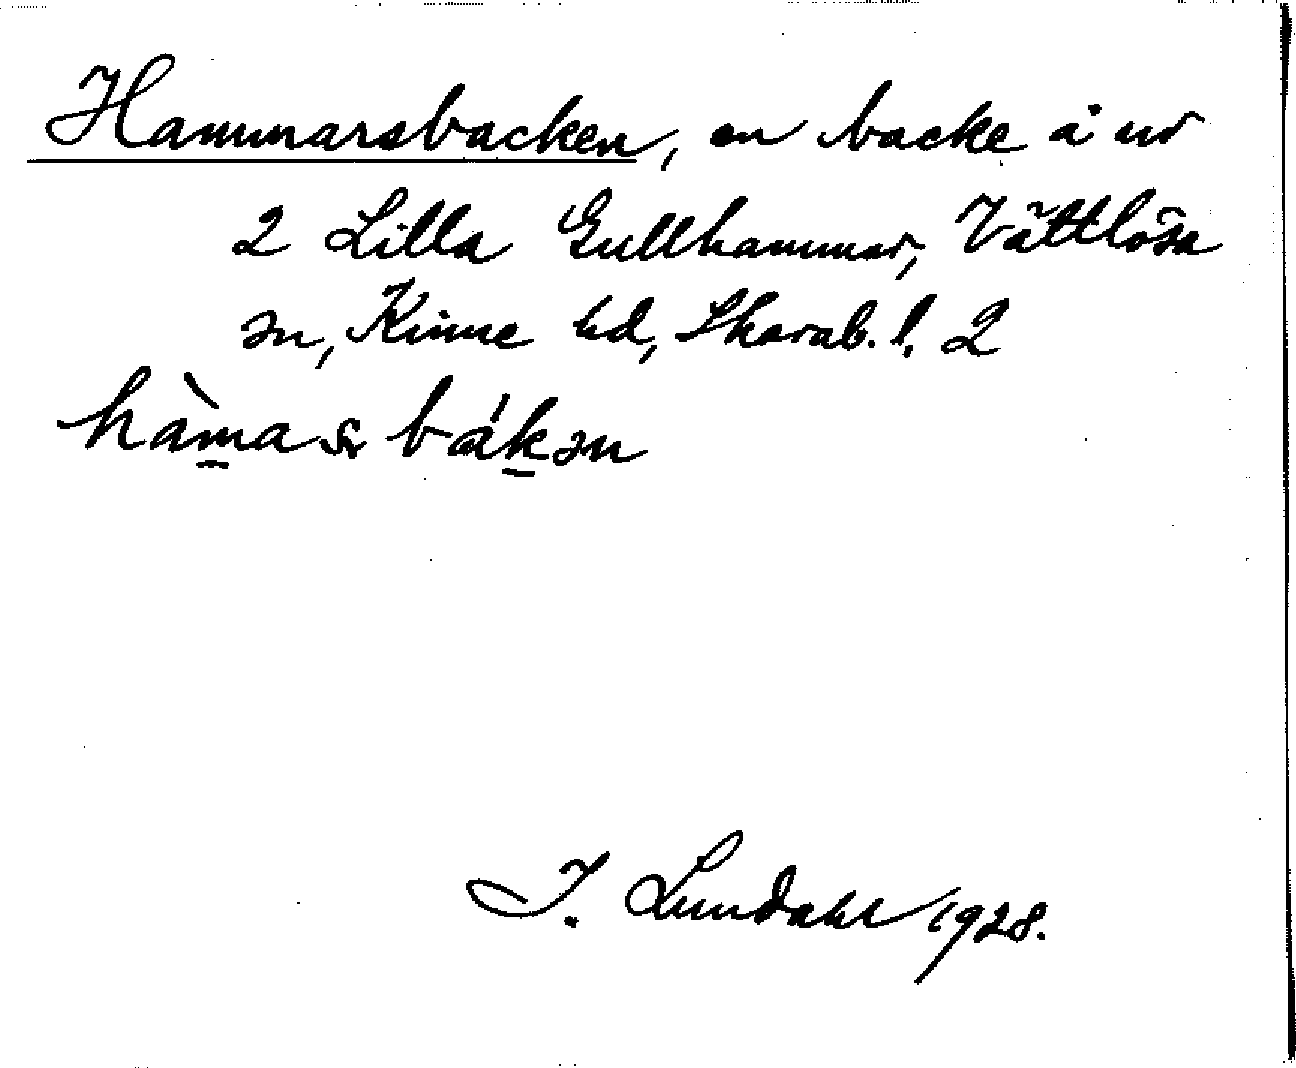 Hammarsbacken, en backe å nr
2 Lilla Gullhammar, Vättlösa
sn, Kinne hd, Skarab. l. 2
hàm̱as báḵən
I. Lundahl 1928.